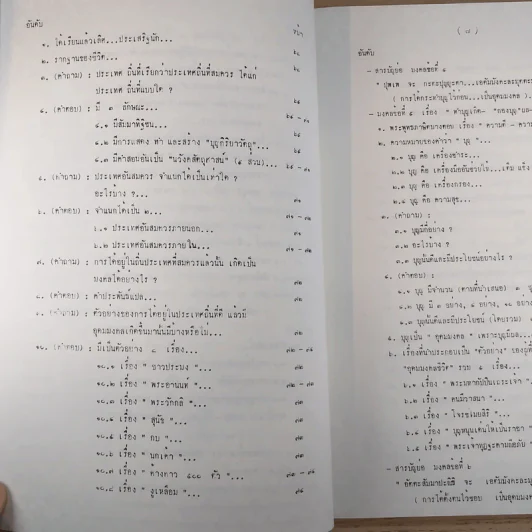 อันดับ
หน้า
๑. ได้เรียนแล้วเกิด...ประเสริฐนัก...
๒. รากฐานของชีวิต...
๓. (คำถาม) : ประเทศ ถิ่นที่เรียกว่าประเทศถิ่นที่สมควร ได้แก่
ประเทศ ถิ่นที่แบบใด ?
๔. (คำตอบ) : มี ๓ ลักษณะ...
๔.๑ มีสัมมาทิฐิชน...
๔.๒ มีการแสดง ทำ และสร้าง "บุญกิริยาวัตถุ"...
๔.๓ มีคำสอนอันเป็น "นวังคสัตถุศาสน์" (๙ ส่วน)...
๕. (คำถาม) : ประเทศอันสมควร จำแนกได้เป็นเท่าใด ?
อะไรบ้าง ?...
๖. (คำตอบ) : จำแนกได้เป็น ๒...
๖.๑ ประเทศอันสมควรภายนอก...
๖.๒ ประเทศอันสมควรภายใน...
๗. (คำถาม) : การได้อยู่ในถิ่นประเทศที่สมควรแล้วนั้น เกิดเป็น
มงคลได้อย่างไร ?
๘. (คำตอบ) : คำประพันธ์แปล...
๙. (คำถาม) : ตัวอย่างของการได้อยู่ในประเทศถิ่นที่ดี แล้วมี
อุดมมงคลเกิดขึ้นมานั้นมีบ้างหรือไม่...
๑๐. (คำตอบ) : มีเป็นตัวอย่าง ๘ เรื่อง...
๑๐.๑ เรื่อง " ชาวประมง "...
๑๐.๒ เรื่อง " พระอานนท์ "...
๑๐.๓ เรื่อง " พระวักกลิ "...
๑๐.๔ เรื่อง " สุนัข "...
๑๐.๕ เรื่อง " กบ "...
๑๐.๖ เรื่อง " นกเค้า "...
๑๐.๗ เรื่อง " ค้างคาว ๕๐๐ ตัว "...
๑๐.๘ เรื่อง " งูเหลือม "...
( ๘ )
อันดับ
- สารบัญย่อ มงคลข้อที่ ๕
( การได้กระทำบุญไว้ก่อน...เป็นอุดมมงคล )
- มงคลข้อที่ ๕ เรื่อง " ทำบุญเกิด-
๑. พระพุทธภาษิตบางตอน เรื่อง " ความดี - ความ
๒. ความหมายของคำว่า " บุญ "...
๒.๑ บุญ คือ เครื่องชำระ...
๒.๒ บุญ คือ เครื่องมืออันช่วยให้...เต็ม แข็ง
๒.๓ บุญ คือ เครื่องกรอง...
๒.๔ บุญ คือ ความสุข...
๓. (คำถาม) :
๓.๑ บุญมีกี่อย่าง ?
๓.๒ อะไรบ้าง ?
๓.๓ บุญนั้นดีและมีประโยชน์อย่างไร ?
๔. (คำตอบ) :
๔.๑ บุญ มีจำนวน (ตามที่นำเสนอ) ๓
๔.๒ บุญ มี ๓ อย่าง, ๔ อย่าง, ๑๐ อย่าง
๔.๓ บุญนั้นดีและมีประโยชน์ (โดยรวม)
๕. บุญเป็น " อุดมมงคล " เพราะบุญมีผล...
๖. เรื่องที่นำประกอบเป็น "ตัวอย่าง" ของผู้ที่
"อุดมมงคลชีวิต" รวม ๕ เรื่อง...
๖.๑ เรื่อง " พระมหากัปปินเถระเจ้า "
๖.๒ เรื่อง " คนมีวาสนา "...
๖.๓ เรื่อง " โจรขโมยสิริ "...
๖.๔ เรื่อง " บุญหนุนคนให้เป็นราชา "
๖.๕ เรื่อง
- สารบัญย่อ มงคลข้อที่ ๖
( การได้ตั้งตนไว้ชอบ เป็นอุดมมงคล